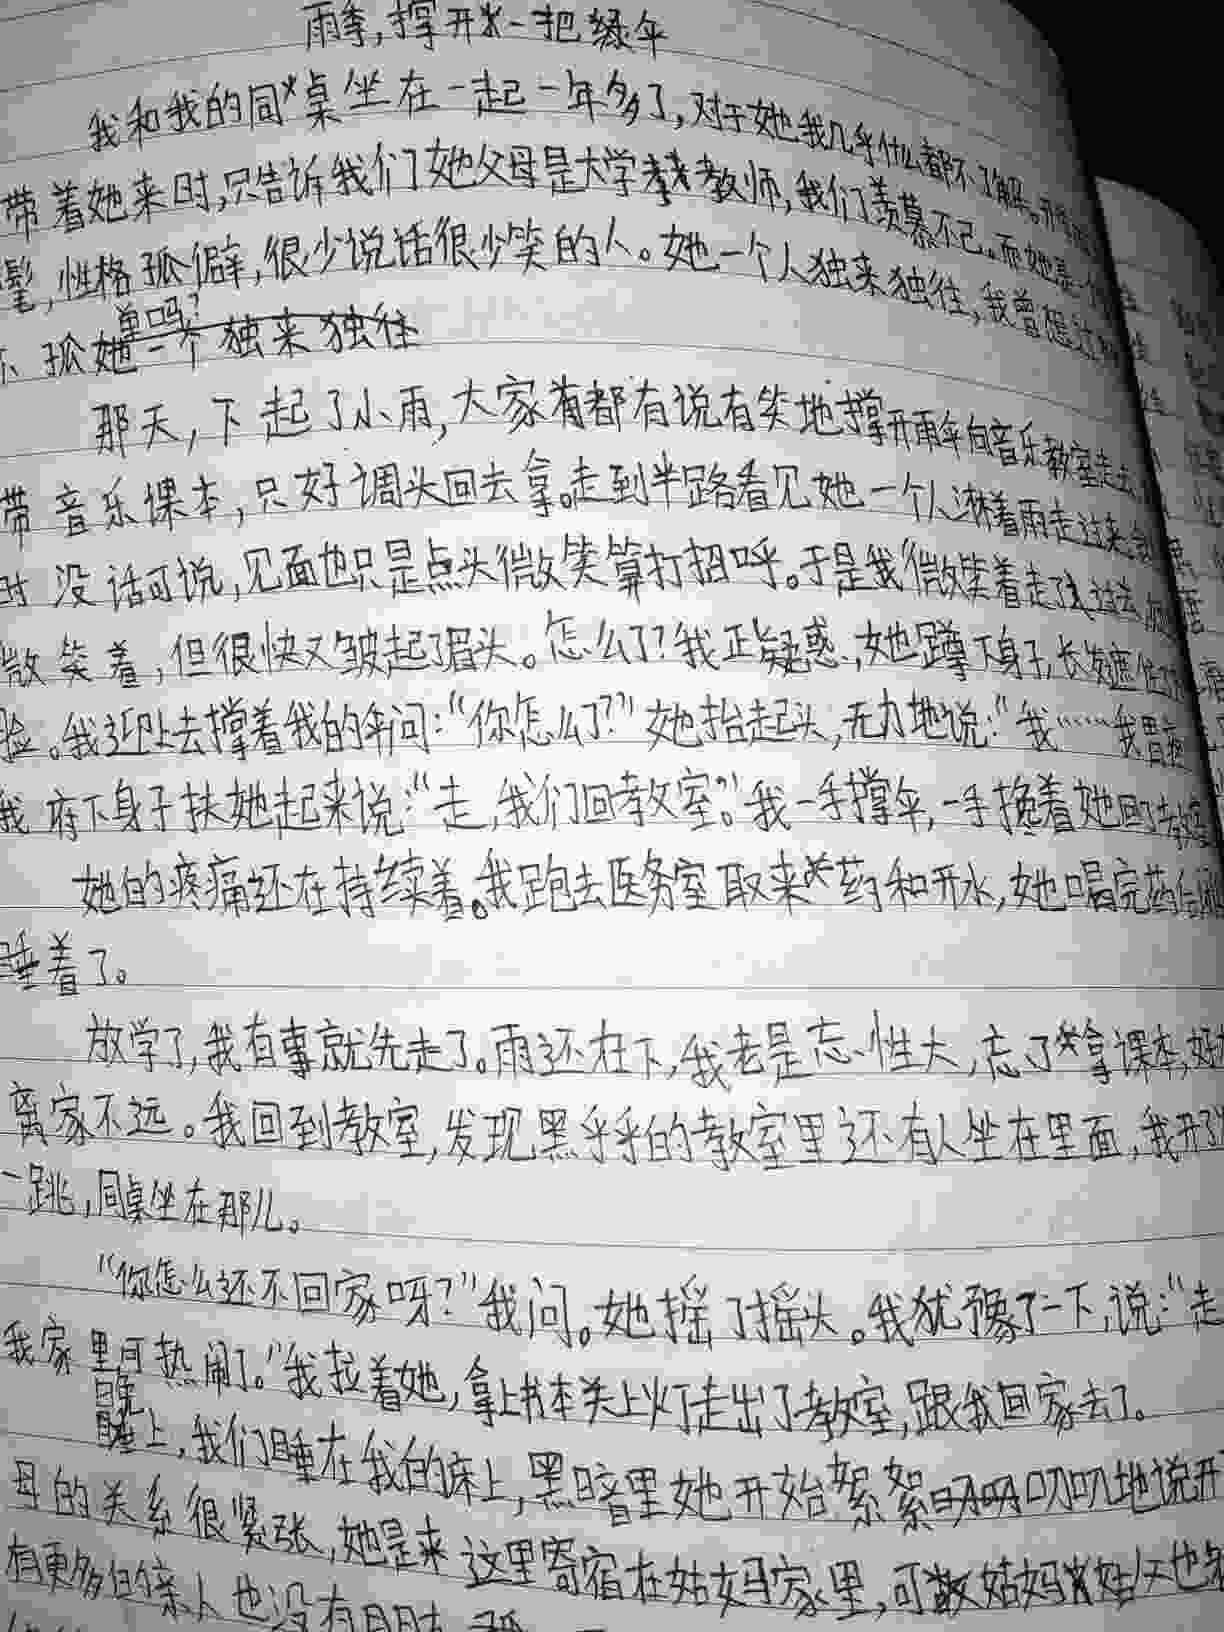 雨季,撑开一把绿伞
我和我的同桌坐在一起一年多了,对于她我几乎什么都不了解。
带着她来时,只告诉我们她父母是大学教师,我们羡慕不已。而她是一个
髦,性格孤僻,很少说话很少笑的人。她一个人独来独往,我曾想过
不孤单吗?
那天,下起了小雨,大家都有说有笑地撑开雨伞向音乐教室走去
带音乐课本,只好调头回去拿。走到半路看见她一个人淋着雨走过来
时没话可说,见面也只是点头微笑算打招呼。于是我微笑着走了过去
微笑着,但很快又皱起了眉头。怎么了?我正疑惑,她蹲下身子,长发遮住了
脸。我迎上去撑着我的伞问:“你怎么了?”她抬起头,无力地说:“我……我胃痛
我俯下身子扶她起来说:“走,我们回教室。”我一手撑伞,一手搀着她回了教室
她的疼痛还在持续着。我跑去医务室取来药和开水,她喝完药
睡着了。
放学了,我有事就先走了。雨还在下,我老是忘性大,忘了拿课本,好在
离家不远。我回到教室,发现黑乎乎的教室里还有人坐在里面,我开了
一跳,同桌坐在那儿。
“你怎么还不回家呀?”我问。她摇了摇头。我犹豫了一下,说:“走
我家里可热闹了。”我拉着她,拿上书本关上灯走出了教室,跟我回家去了。
晚上,我们睡在我的床上,黑暗里她开始絮絮叨叨地说开
母的关系很紧张,她是来这里寄宿在姑妈家里,可姑妈姑父也
有更多的亲人也没有朋友